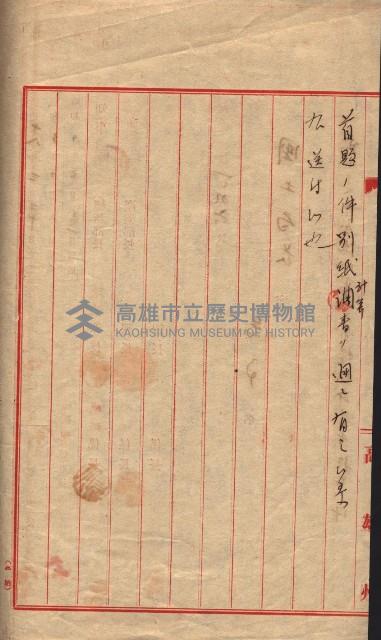 首題ノ件別紙調書ノ通ニ有之候条
計算
送付候也
高雄州
高雄市立歷史博物館
KAOHSIUNG MUSEUM OF HISTORY